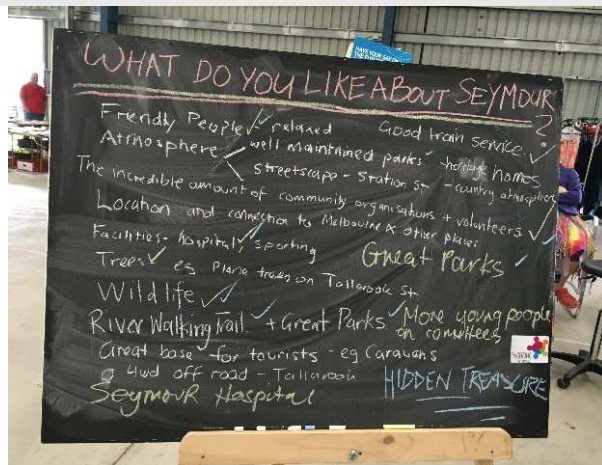 HAVE YOUR SAY ON
WHAT DO YOU LIKE ABOUT SEYMOUR?
Friendly People - relaxed
Good train service
Atmosphere well maintained parks - heritage homes
Streetscape - Station St - country atmosphere
The incredible amount of community organisations + volunteers
Location and connection to Melbourne & other places
Facilities - hospital, sporting
Great Parks
Trees eg Plane trees on Tallarook St
Wildlife
River Walking Trail + Great Parks
More young people on committees
Great base for tourists - eg Caravans
4wd off road - Tallarook
HIDDEN TREASURE
Seymour Hospital